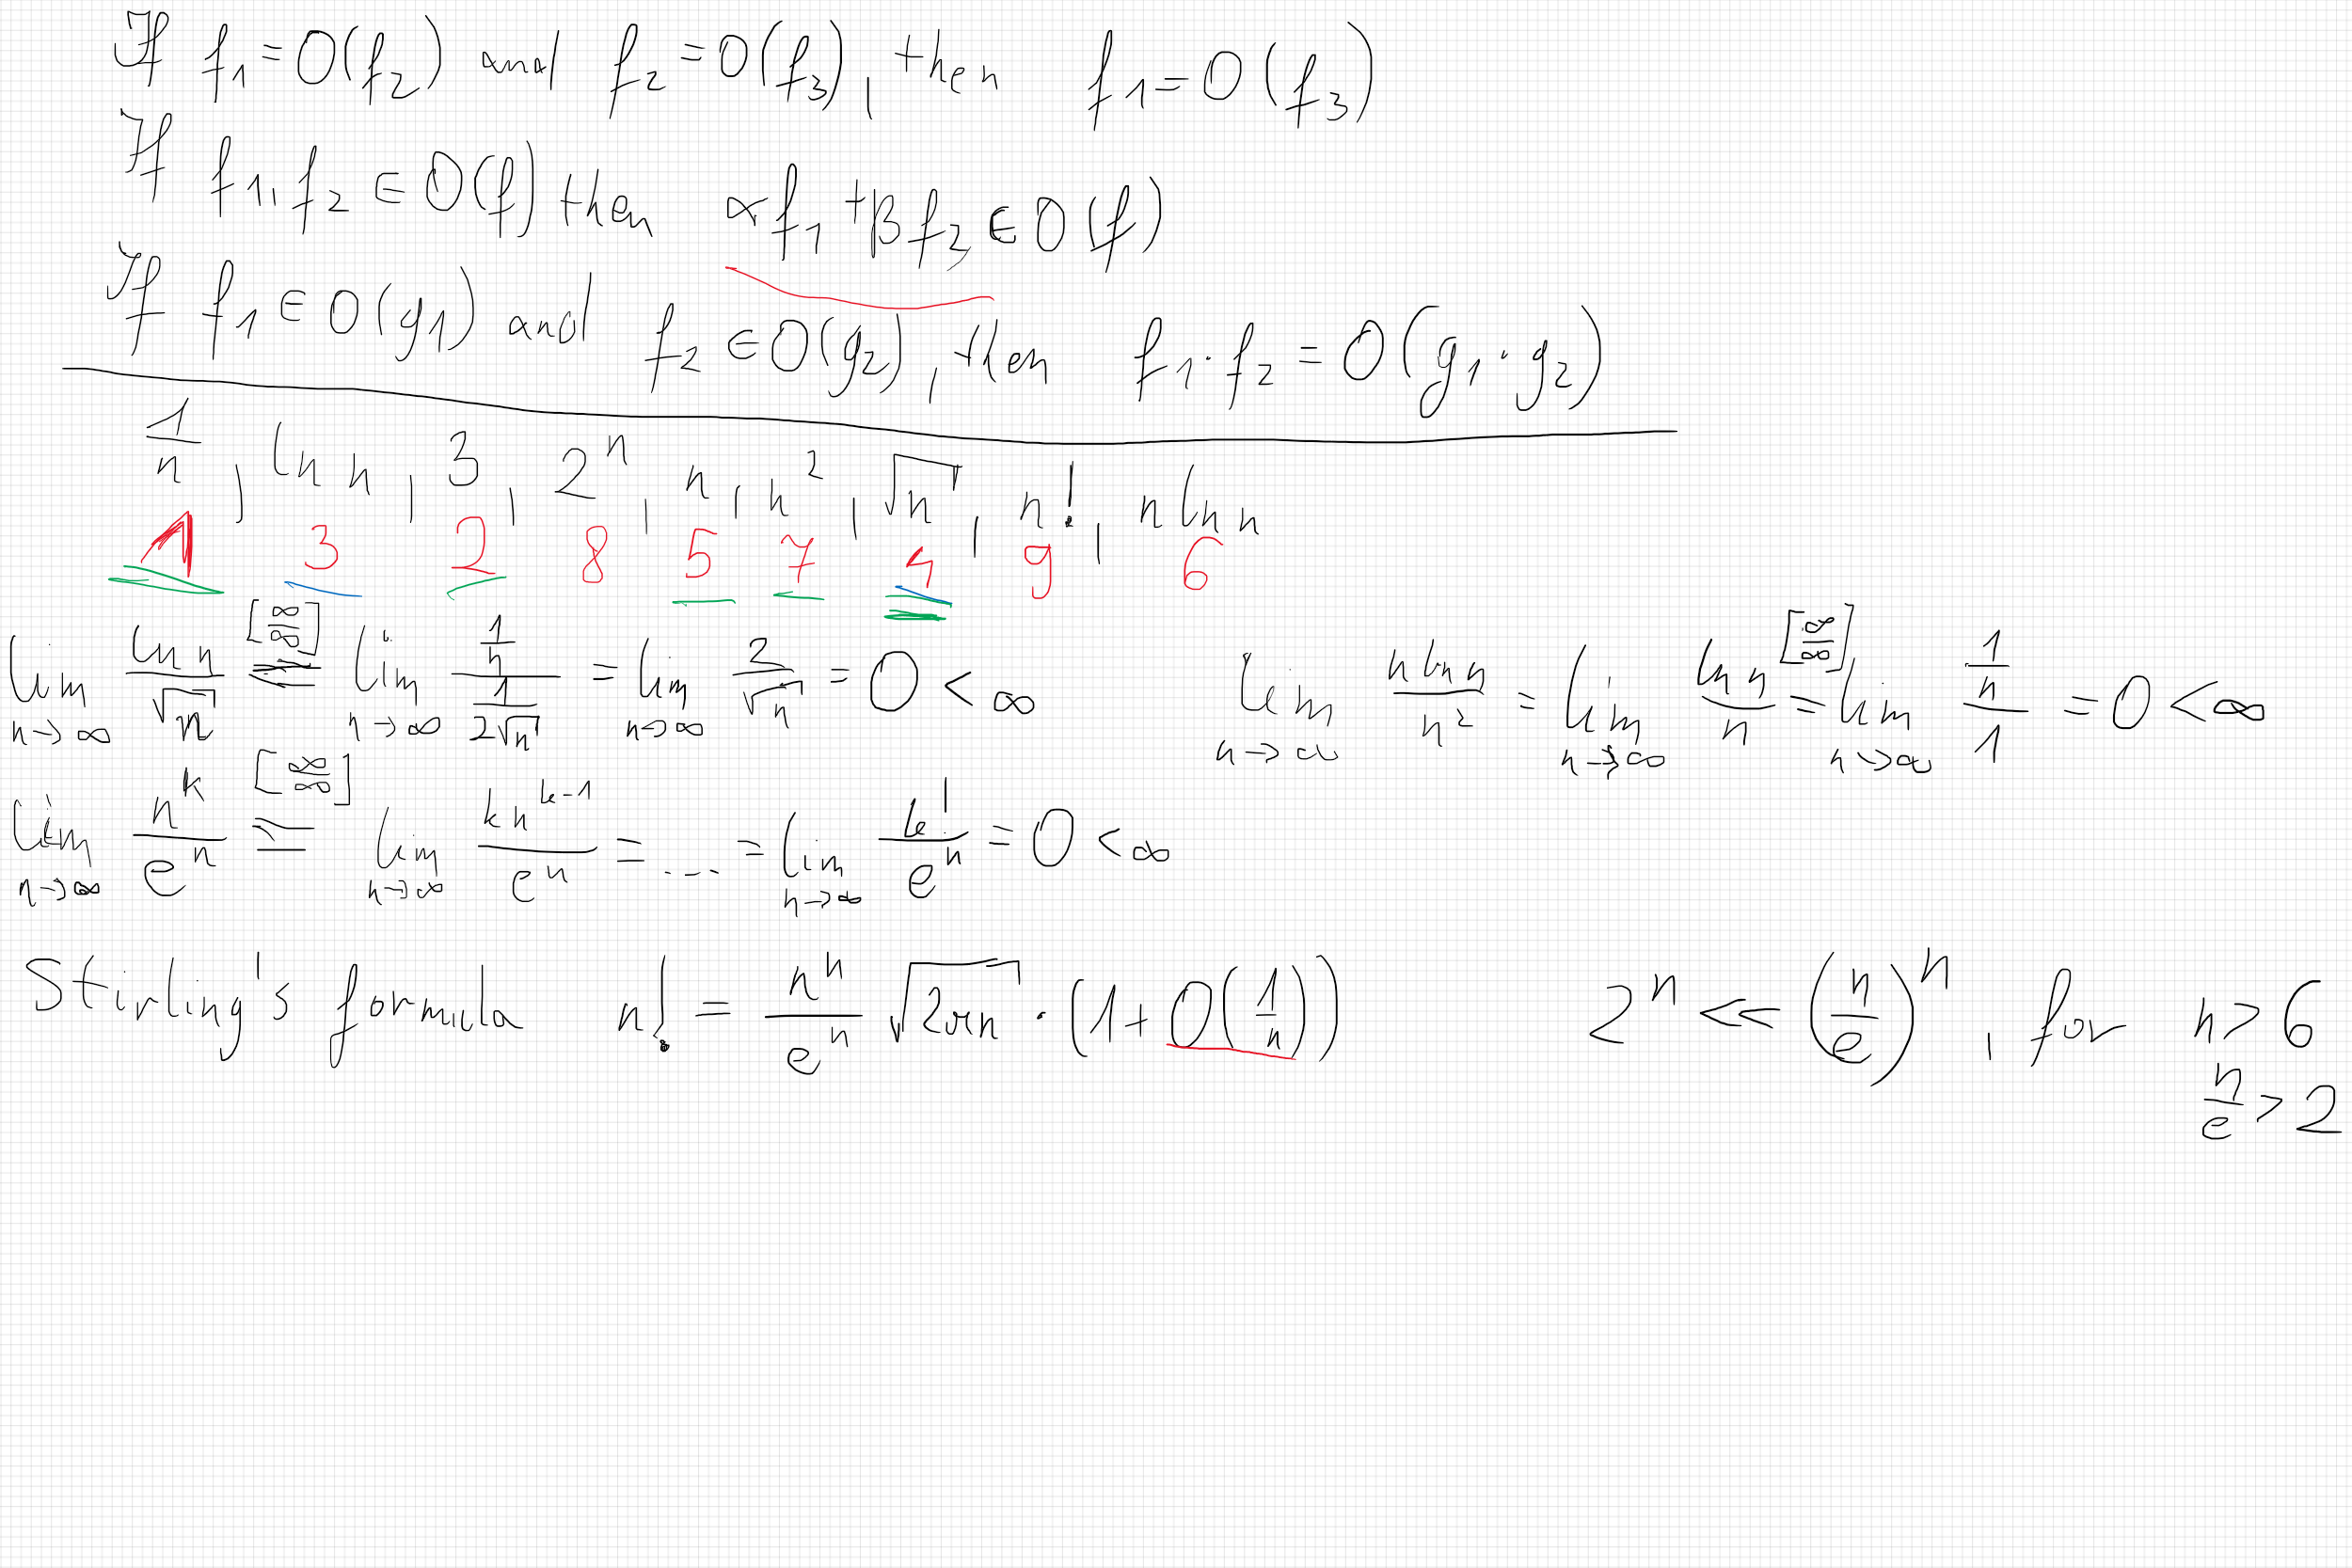 If f₁ = O(f₂) and f₂ = O(f₃), then f₁ = O(f₃)
If f₁, f₂ ∈ O(f) then αf₁ + βf₂ ∈ O(f)
If f₁ ∈ O(g₁) and f₂ ∈ O(g₂), then f₁·f₂ = O(g₁·g₂)
1/n, ln n, 3, 2ⁿ, n, n², √n, n!, n ln n
1 3 2 8 5 7 4 9 6
lim_{n→∞} (ln n)/(√n) =^{[∞/∞]} lim_{n→∞} (1/n)/(1/(2√n)) = lim_{n→∞} 2/√n = 0 < ∞ lim_{n→∞} (n ln n)/n² = lim_{n→∞} (ln n)/n =^{[∞/∞]} lim_{n→∞} (1/n)/1 = 0 < ∞
lim_{n→∞} n^k/e^n =^{[∞/∞]} lim_{n→∞} (k n^{k-1})/e^n = ... = lim_{n→∞} k!/e^n = 0 < ∞
Stirling's formula n! = (n^n/e^n) √(2πn) · (1 + O(1/n)) 2ⁿ << (n/e)^n, for n > 6
n/e > 2